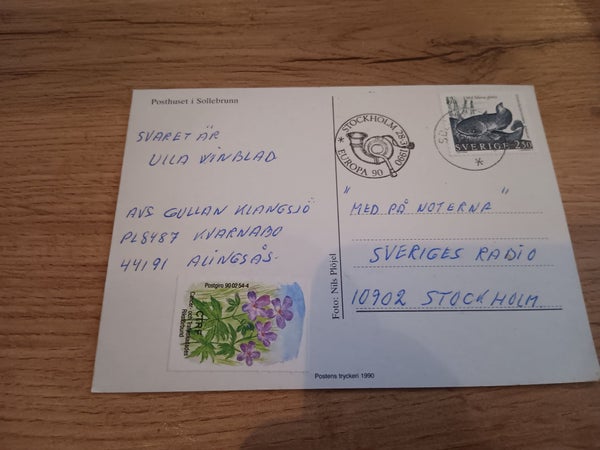 Posthuset i Sollebrunn
SVARET ÄR
ULLA WINBLAD
AVS GULLAN KLANGSJÖ
PL8487 KVARNABO
44191 ALINGSÅS.
Postgiro 90 02 54-4
CTRF
Foto: Nils Plöjel
Postens tryckeri 1990
* STOCKHOLM 28-3 1990
EUROPA 90
SVERIGE 230
"MED PÅ NOTERNA"
SVERIGES RADIO
10902 STOCKHOLM